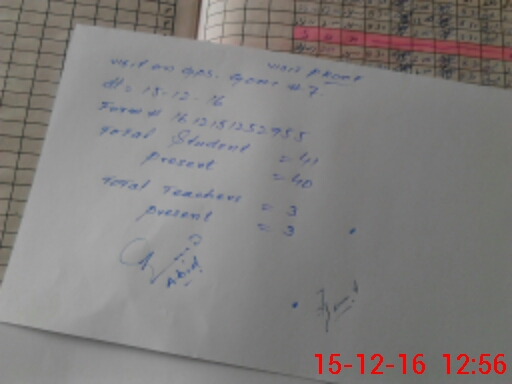 visit proof
visit on GPS. # 7
dt = 15-12-16
Form # 1612151252955
Total Student = 41
present = 40
Total Teachers = 3
present = 3
Abid
15-12-16 12:56